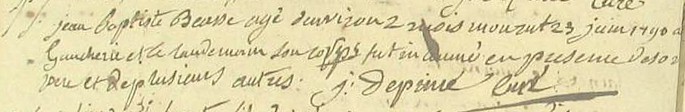 jean Baptiste Beasse agé d'environ 2 mois mourut 23 juin 1790 a
Gaucherie et le landemain son corps fut inhumé en presence de so
pere et de plusieurs autres. j: Depinee Curé